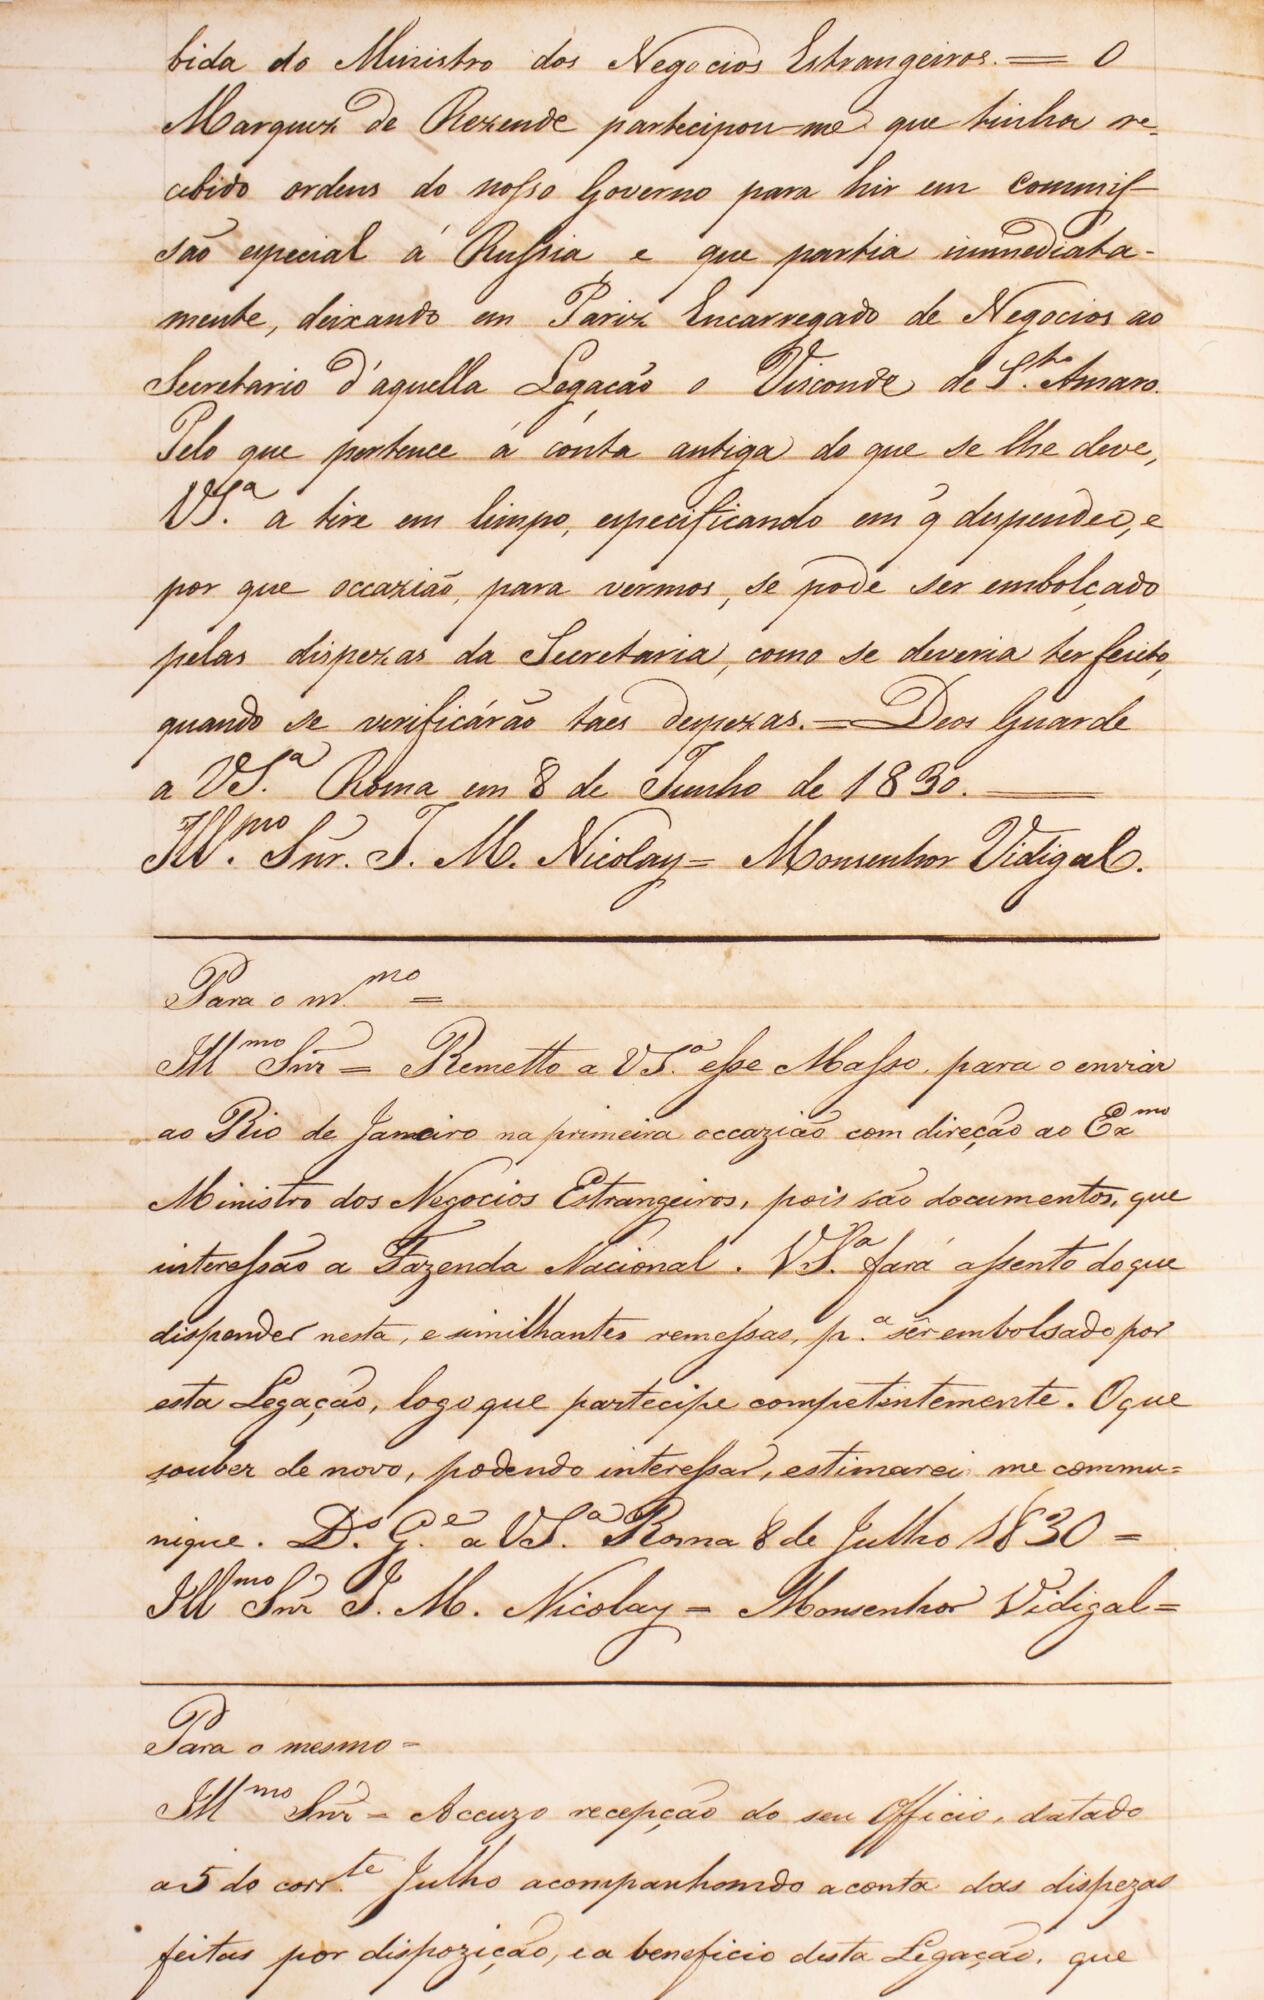 bida do Ministro dos Negocios Estrangeiros. = O
Marquez de Rezende partecipou-me que tinha re-
cebido ordens do nosso Governo para hir em commis-
são especial á Russia, e que partia immediata-
mente, deixando em Pariz Encarregado de Negocios ao
Secretario d'aquella Legacão o Visconde de S.to Amaro.
Pelo que pertence á cónta antiga do que se lhe deve,
VS.a a tire em limpo, especificando em q̃ despendeo, e
por que occazião, para vermos, se pode ser embolçado
pelas dispezas da Secretaria, como se deveria ter feito,
quando se verificárão taes despezas. = Deos Guarde
a VS.a Roma em 8 de Junho de 1830.
Ill.mo Snr. J. M. Nicolay = Monsenhor Vidigal.
Para o m.mo =
Illmo Snr = Remetto a VS.a esse Masso, para o enviar
ao Rio de Janeiro na primeira occazião com direção ao Exmo
Ministro dos Negocios Estrangeiros, pois são documentos, que
interessão a Fazenda Nacional. VS.a fará assento do que
dispender nesta, e similhantes remessas, p.a sêr embolsado por
esta Legação, logo que partecipe competentemente. O que
souber de novo, podendo interessar, estimarei me commu=
nique. D.s G.e a VS.a Roma 8 de Julho 1830 =
Illmo Snr J. M. Nicolay = Monsenhor Vidigal =
Para o mesmo =
Illmo Snr = Accuzo recepção do seu Officio, datado
a 5 do corr.te Julho acompanhando a conta das dispezas
feitas por dispozição, e a beneficio desta Legação, que